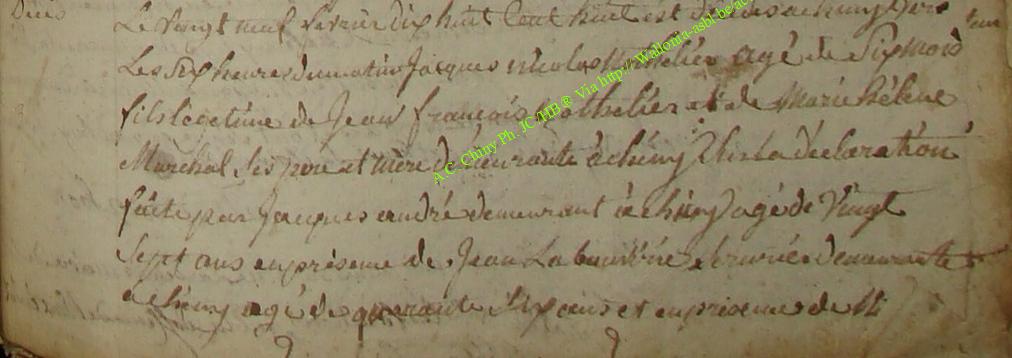 Décès Le vingt neuf février dix huit cent huit est décédé a chiny vers
Les six heures du matin Jacques nicolas authelier agé de six mois
fils légetime de Jean françois authelier et de Marie hélène
Marechal ses pere et mère demeurante à chiny sur la déclaration
faite par Jacques andré demeurant à chiny agé de vingt
sept ans en présence de Jean La demeurante
a chiny agé de quarante six ans et en présence de
A.C. Chiny Ph. JC HB® Via http://Wallonia-asbl-be/ac